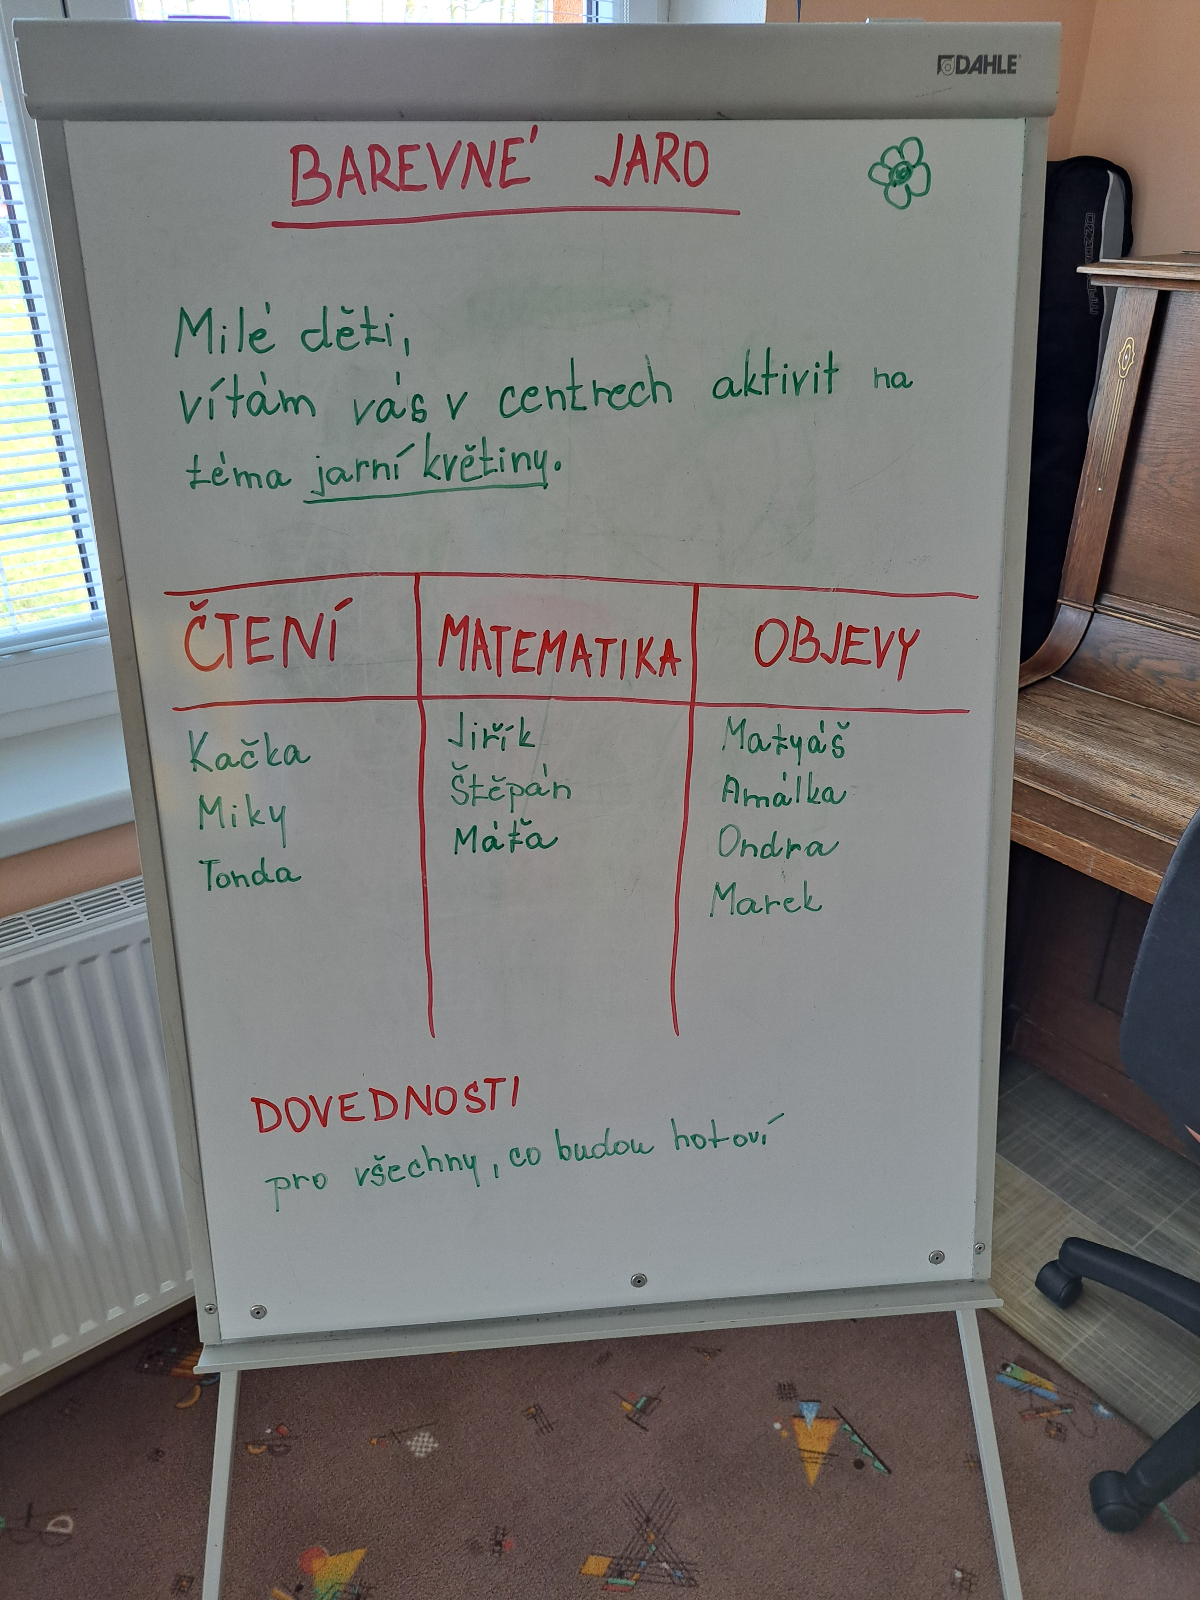 DAHLE
BAREVNÉ JARO
Milé děti,
vítám vás v centrech aktivit na
téma jarní květiny.
ČTENÍ MATEMATIKA OBJEVY
Kačka Jiřík Matyáš
Miky Štěpán Amálka
Tonda Máťa Ondra
Marek
DOVEDNOSTI
pro všechny, co budou hotoví